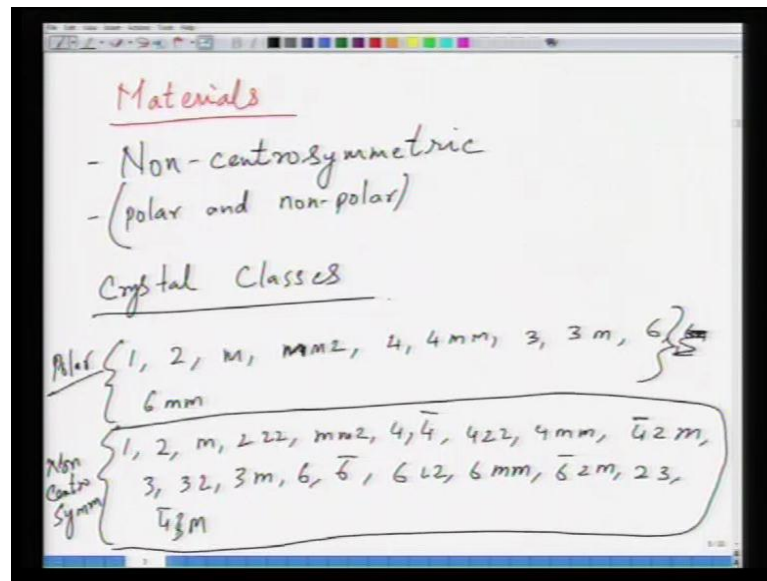 Materials
- Non-centrosymmetric
- (polar and non-polar)
Crystal Classes
Polar { 1, 2, m, mm2, 4, 4mm, 3, 3m, 6, }
6mm
Non Centro Symm { 1, 2, m, 222, mm2, 4, 4̅, 422, 4mm, 4̅2m,
3, 32, 3m, 6, 6̅, 622, 6mm, 6̅2m, 23,
4̅3m